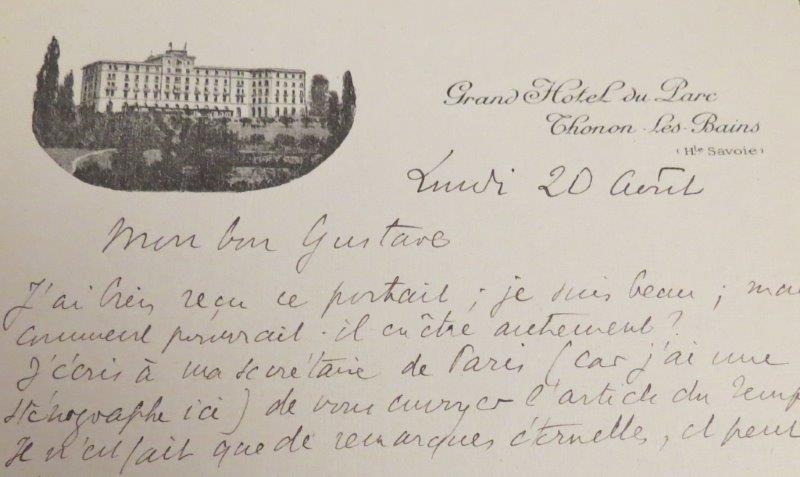 Grand Hôtel du Parc
Thonon-Les-Bains
(Hte Savoie)
Lundi 20 Août
Mon bon Gustave
J'ai bien reçu ce portrait ; je suis beau ; mais
comment pourrait-il en être autrement ?
J'écris à ma secrétaire de Paris (car j'ai une
sténographe ici) de vous envoyer l'article du Temps
Je n'en fait que de remarques éternelles, il peut